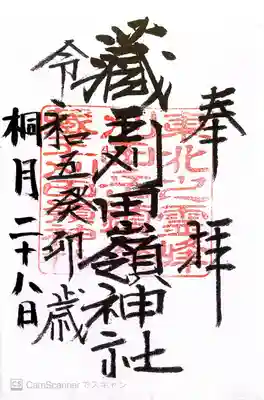 奉拝
東北之靈峰
藏王刈田嶺神社
令和五癸卯歳
桐月二十八日
CS CamScanner でスキャン